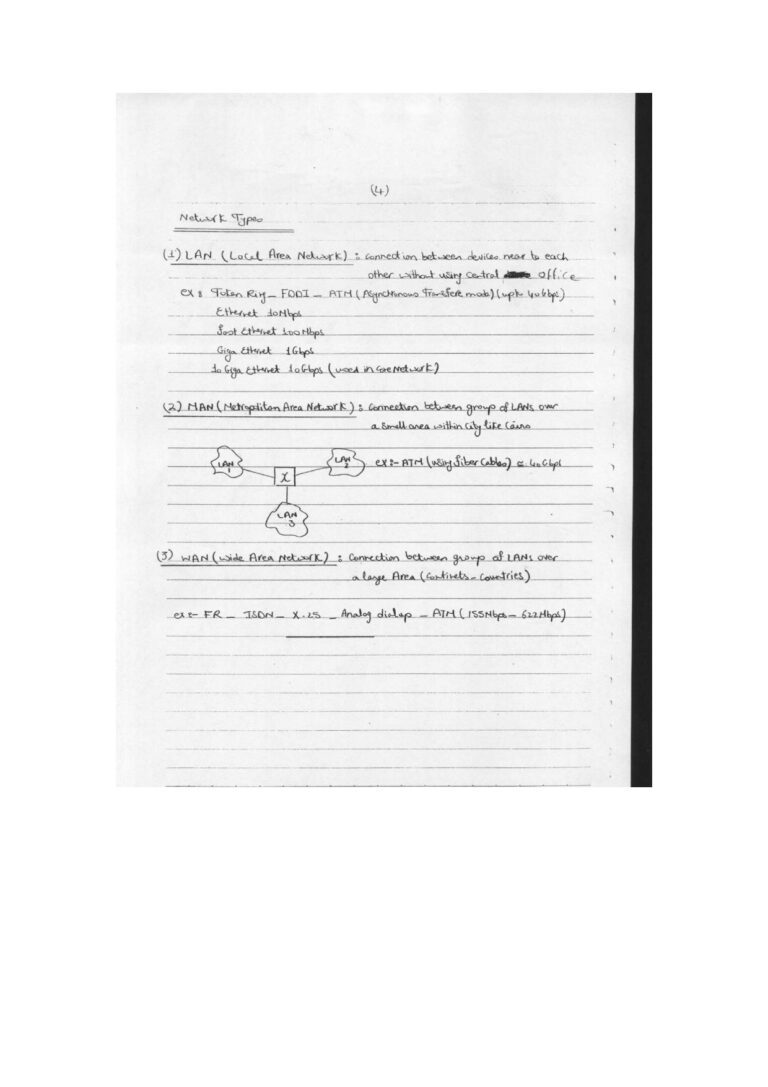 (4)
Network Types
(1) LAN (Local Area Network) : connection between devices near to each
other without using central office
ex : Token Ring _ FDDI _ ATM (Asynchronous Transfere mode) (upto 40Gbps)
Ethernet 10Mbps
Fast Ethernet 100Mbps
Giga Ethernet 1Gbps
10 Giga Ethernet 10Gbps (used in core Network)
(2) MAN (Metropolitan Area Network) : Connection between group of LANs over
a small area within city like Cairo
LAN
1
LAN
2
X
LAN
3
ex:- ATM (using fiber cables) ≈ 40Gbps
(3) WAN (Wide Area Network) : Connection between group of LANs over
a large Area (Continets - Countries)
ex:- FR _ ISDN _ X.25 _ Analog dialup _ ATM (155Mbps - 622Mbps)